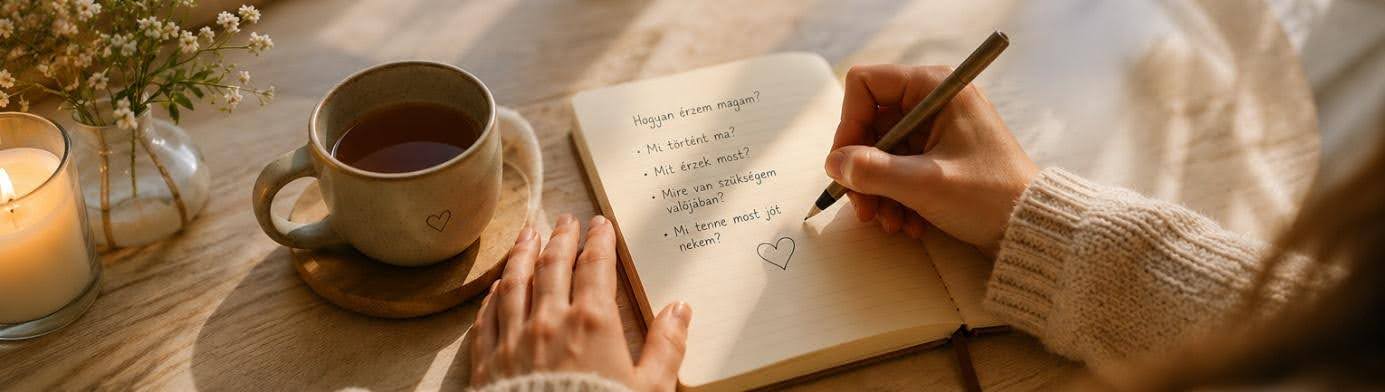 Hogyan érzem magam?
• Mi történt ma?
• Mit érzek most?
• Mire van szükségem
valójában?
• Mi tenne most jót
nekem?